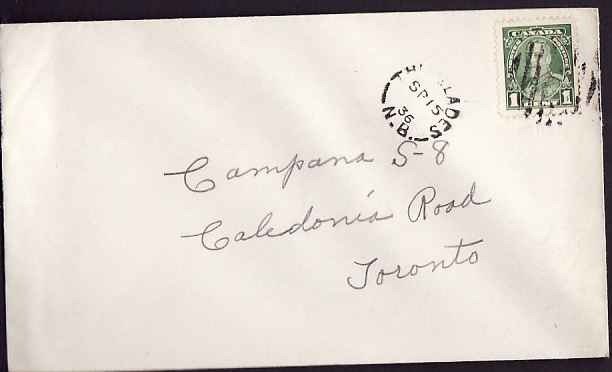 CANADA
1 1
THE GLADES
SP 15
36
N.B.
Campana S-8
Caledonia Road
Toronto